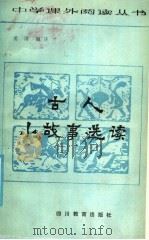 中学课外阅读丛书
古人
小故事选读
四川教育出版社